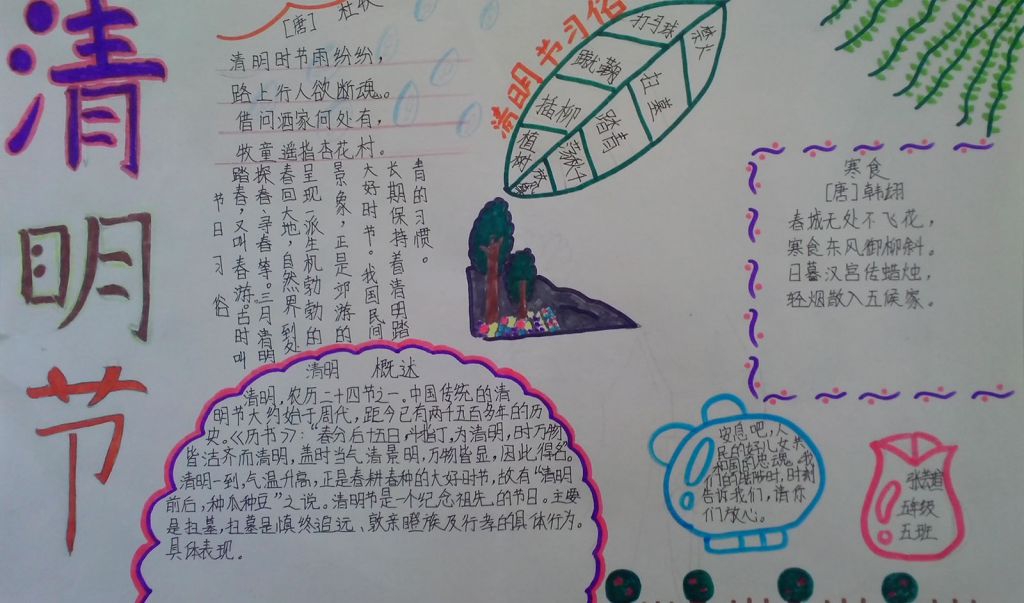 清明节
[唐] 杜牧
清明时节雨纷纷，
路上行人欲断魂。
借问洒家何处有，
牧童遥指杏花村。
清明节习俗
打马球
禁火
蹴鞠
扫墓
插柳
踏青
植树
荡秋千
寒食
[唐] 韩翃
春城无处不飞花，
寒食东风御柳斜。
日暮汉宫传蜡烛，
轻烟散入五候家。
节日习俗
踏春，又叫春游。古时叫
探春、寻春等。三月清明
春回大地，自然界到处
呈现一派生机勃勃的
景象，正是郊游的
大好时节。我国民间
长期保持着清明踏
青的习惯。
清明 概述
清明，农历二十四节之一。中国传统的清
明节大约始于周代，距今已有两千五百多年的历
史。《历书》：“春分后十五日，斗指丁，为清明，时万物
皆洁齐而清明，盖时当气清景明，万物皆显，因此得名。
清明一到，气温升高，正是春耕春种的大好时节，故有“清明
前后，种瓜种豆”之说。清明节是一个纪念祖先的节日。主要
是扫墓，扫墓是慎终追远、敦亲睦族及行孝的具体行为。
具体表现。
安息吧，人
民的好儿女共
和国的忠魂。我
们的踏步时，时刻
告诉我们，请你
们放心。
五年级
五班